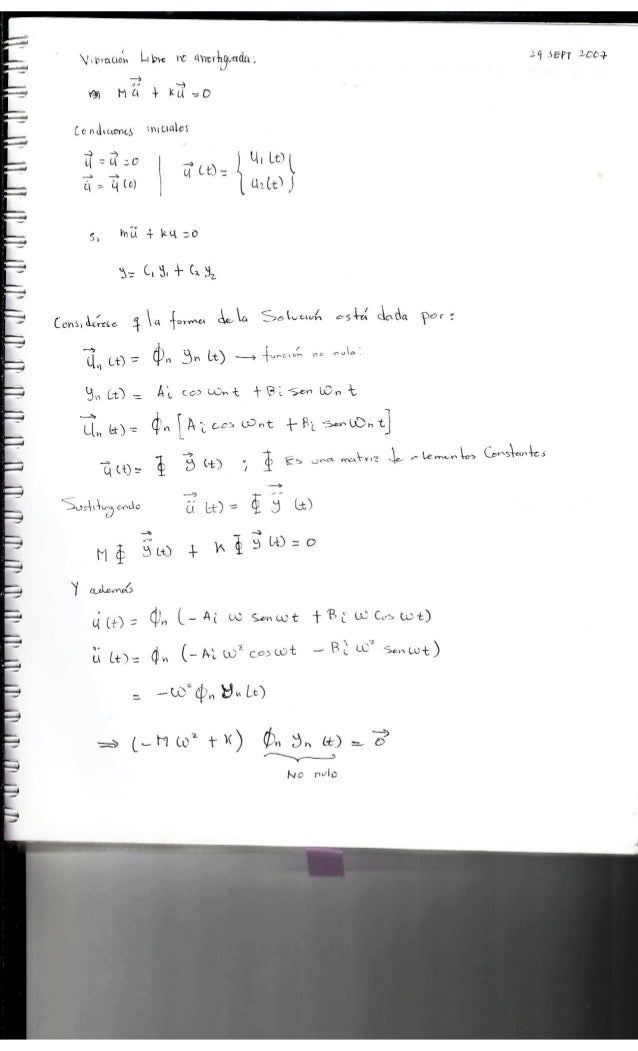 Vibración Libre no amortiguada:
29 SEPT 2007
M\vec{\ddot{u}} + K\vec{u} = 0
Condiciones iniciales
\vec{u} = \vec{u} = 0 | \vec{u}(t) = { u₁(t)
\vec{u} = \vec{u}(0) | u₂(t) }
Si mü + ku = 0
y = C₁ y₁ + C₂ y₂
Considérese q la forma de la Solución está dada por:
\vec{u}ₙ(t) = ϕₙ yₙ(t) → función no nula:
yₙ(t) = Ai cos ωnt + Bi sen ωnt
\vec{u}ₙ(t) = ϕₙ [Ai cos ωnt + Bi sen ωnt]
\vec{u}(t) = Φ \vec{y}(t) ; Φ Es una matriz de elementos Constantes
Sustituyendo \vec{\ddot{u}}(t) = Φ \vec{\ddot{y}}(t)
MΦ \vec{\ddot{y}}(t) + KΦ \vec{y}(t) = 0
Y además
u̇(t) = ϕₙ (-Ai ω sen ωt + Bi ω cos ωt)
ü(t) = ϕₙ (-Ai ω² cos ωt - Bi ω² sen ωt)
= -ω² ϕₙ yₙ(t)
⇒ (-Mω² + K) ϕₙ yₙ(t) = \vec{0}
No nulo